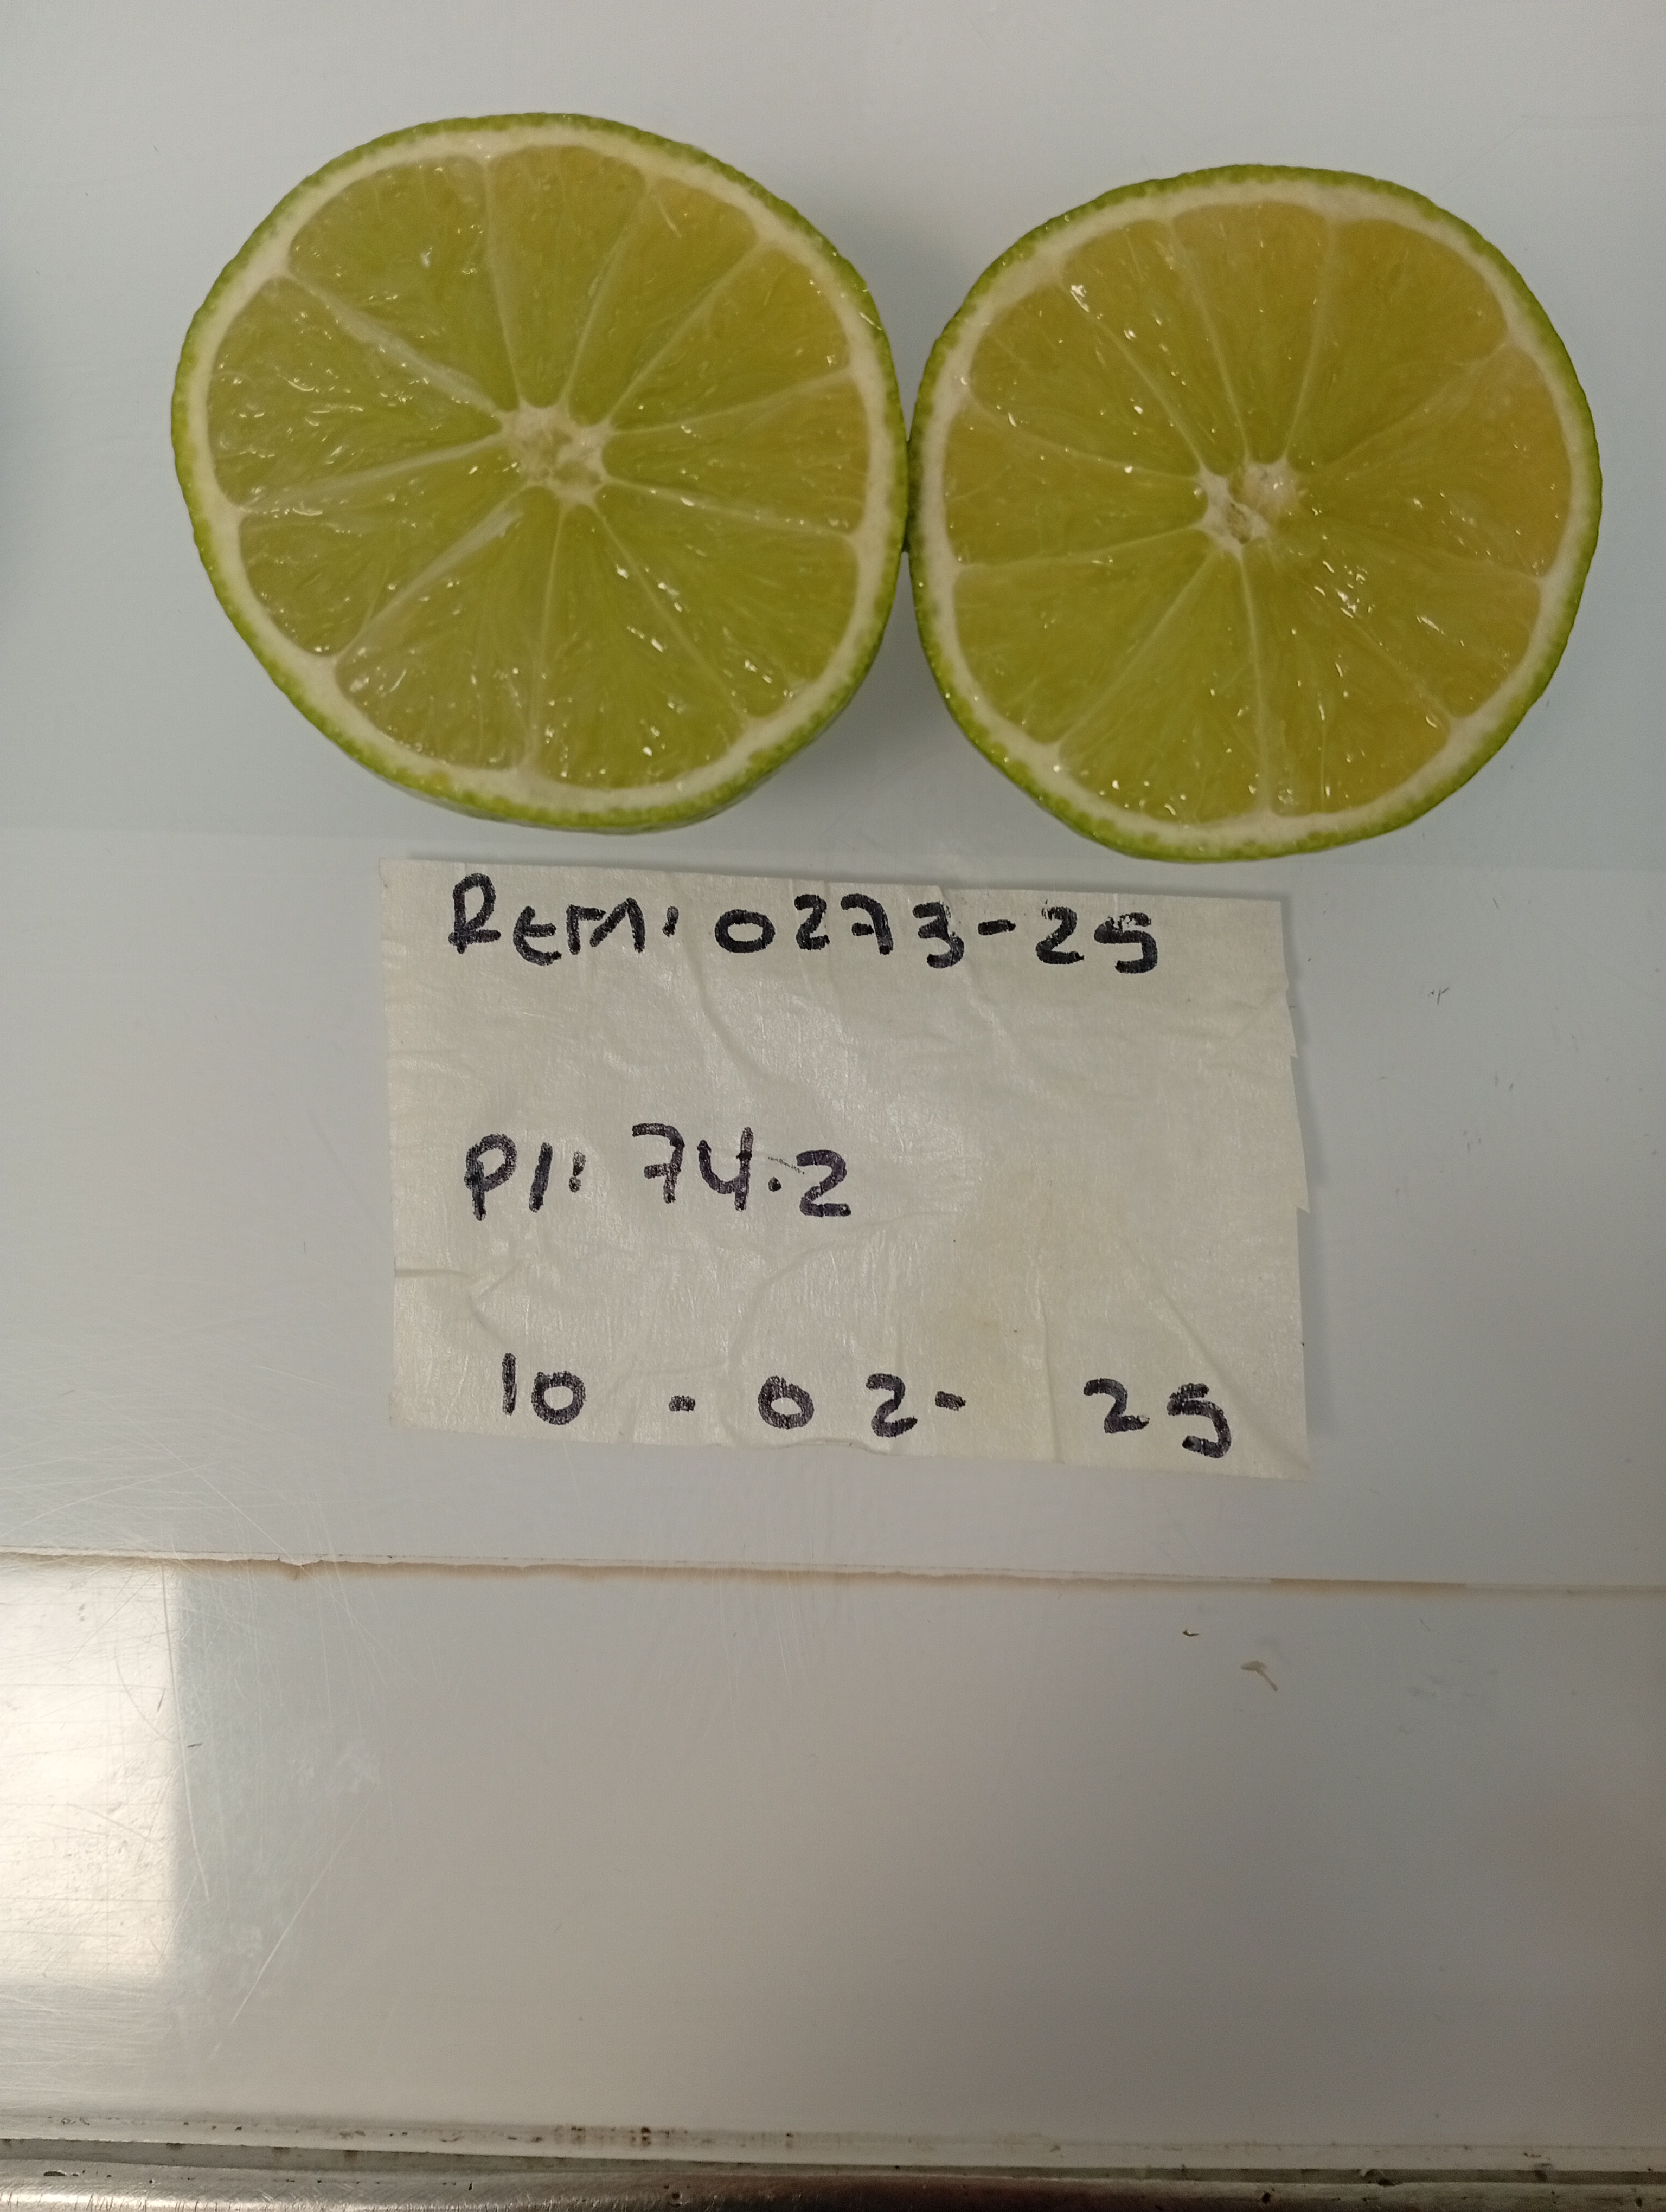 Rem: 0273-25
PI: 74.2
10-02-25